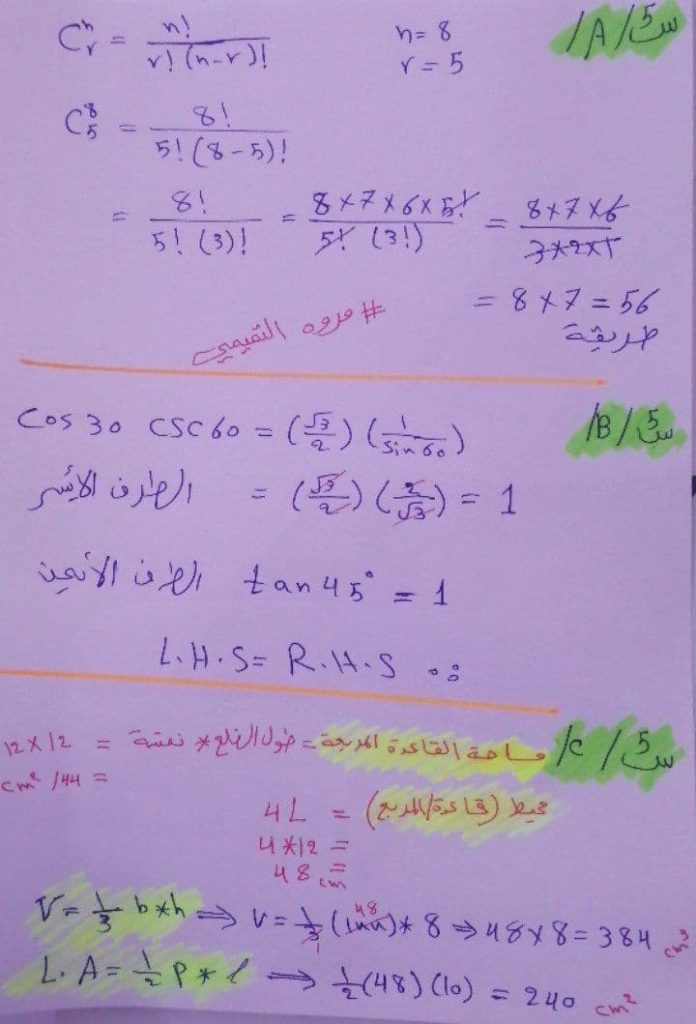 س5/A/
C^n_r = n! / r!(n-r)!   n = 8
r = 5
C^8_5 = 8! / 5!(8-5)!
= 8! / 5!(3)! = 8×7×6×5! / 5!(3!) = 8×7×6 / 3×2×1
= 8×7 = 56
طريقة
# مروه التميمي
س5/B/
Cos 30 CSC 60 = (√3/2) (1/sin 60)
الطرف الأيسر = (√3/2) (2/√3) = 1
الطرف الأيمن tan 45° = 1
L.H.S = R.H.S ∴
س5/C/
مساحة القاعدة المربعة = طول الضلع * نفسة = 12×12
= 144 cm²
محيط (قاعدة/المربع) = 4L
= 4*12
= 48 cm
V = 1/3 b*h ⇒ V = 1/3 (144) * 8 ⇒ 48×8 = 384 cm³
48
1
L.A = 1/2 P*l ⇒ 1/2 (48)(10) = 240 cm²